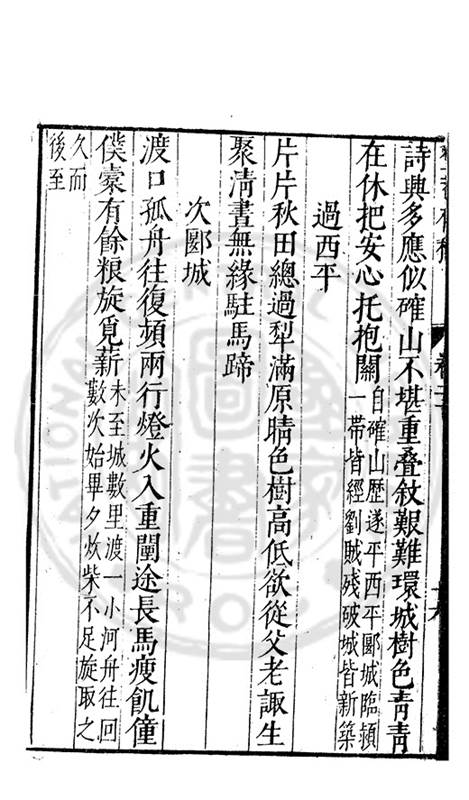 詩興多應似確山不堪重叠敘艱難環城樹色青青
在休把安心托抱關自確山歷遂平西平郾城臨頴
一帶皆經劉賊殘破城皆新築
過西平
片片秋田總過犁滿原晴色樹高低欲從父老諏生
聚清晝無緣駐馬蹄
次郾城
渡口孤舟往復頻兩行燈火入重闉途長馬瘦飢僮
僕橐有餘粮旋覓薪未至城數里渡一小河舟往回
數次始畢夕炊柴不足旋取之
久而
後至